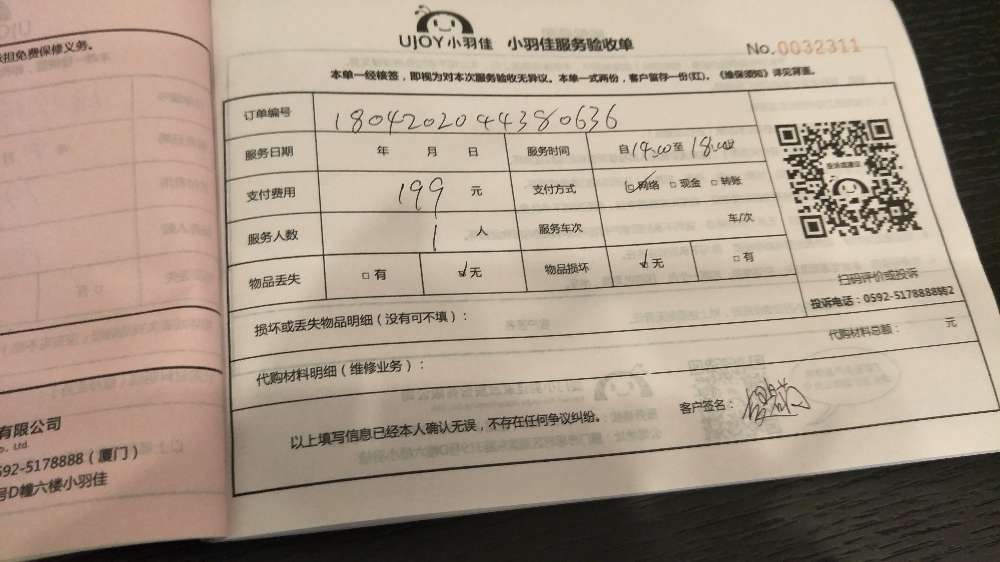 承担免费保修义务。
UJOY小羽佳 小羽佳服务验收单
No.0032311
本单一经核签，即视为对本次服务验收无异议。本单一式两份，客户留存一份(红)。《维保须知》详见背面。
订单编号 1804202044380636
服务日期 年 月 日 服务时间 自14:00至18:00
支付费用 199 元 支付方式 ☑网络 □现金 □转账
服务人数 1 人 服务车次 车/次
物品丢失 □有 ☑无 物品损坏 ☑无 □有
投诉或建议
扫码评价或投诉
投诉电话：0592-5178888转2
损坏或丢失物品明细（没有可不填）：
代购材料明细（维修业务）： 代购材料总额： 元
以上填写信息已经本人确认无误，不存在任何争议纠纷。 客户签名：
有限公司
Co., Ltd.
592-5178888（厦门）
号D幢六楼小羽佳